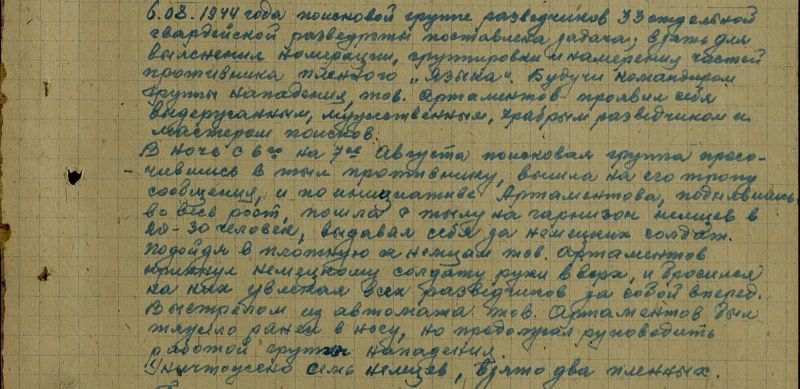 6.08.1944 года поисковой группе разведчиков 33 отдельной
гвардейской разведроты поставлена задача; взять для
выяснения нумерации, группировки и намерения частей
противника пленного „языка“. Будучи командиром
группы нападения, тов. Артаментов проявил себя
выдержанным, мужественным, храбрым разведчиком и
мастером поисков.
В ночь с 6го на 7ое Августа поисковая группа просо-
чившись в тыл противнику, вышла на его тропу
сообщения, и по инициативе Артаментова, поднявшись
во весь рост, пошла с тылу на гарнизон немцев в
20-30 человек, выдавая себя за немецких солдат.
Подойдя в плотную к немцам тов. Артаментов
крикнул немецкому солдату руки вверх, и бросился
на них увлекая всех разведчиков за собой вперед.
Выстрелом из автомата тов. Артаментов был
тяжело ранен в ногу, но продолжал руководить
работой группы нападения.
Уничтожено семь немцев, взято два пленных.